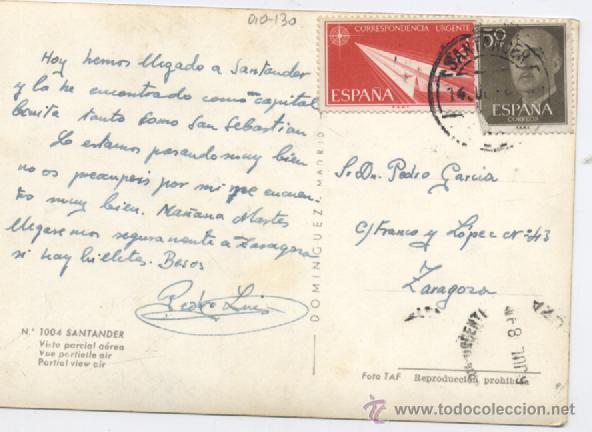 010-130
Hoy hemos llegado a Santander
y la he encontrado como capital
bonita tanto como San Sebastian
Lo estamos pasando muy bien
no os preocupeis por mi que encuen-
tro muy bien. Mañana Martes
llegaremos seguramente a Zaragoza
si hay billetes. Besos
Pedro Luis
N.° 1004 SANTANDER
Vista parcial aérea
Vue partielle air
Partial view air
DOMINGUEZ MADRID
CORRESPONDENCIA URGENTE
ESPAÑA
SANTANDER
ESPAÑA
CORREOS
S. Dn. Pedro Garcia
C/ Franco y López nº 43
Zaragoza
Foto TAF Reproducción prohibida
www.todocoleccion.net